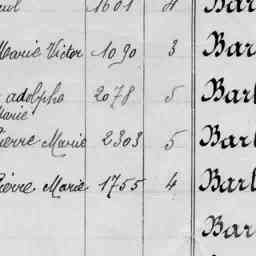 1601 4
Marie Victor 1090 3 Bar
adolphe 2078 5 Barb
Marie
Pierre Marie 2303 5 Barb
Pierre Marie 1755 4 Barb
Bar